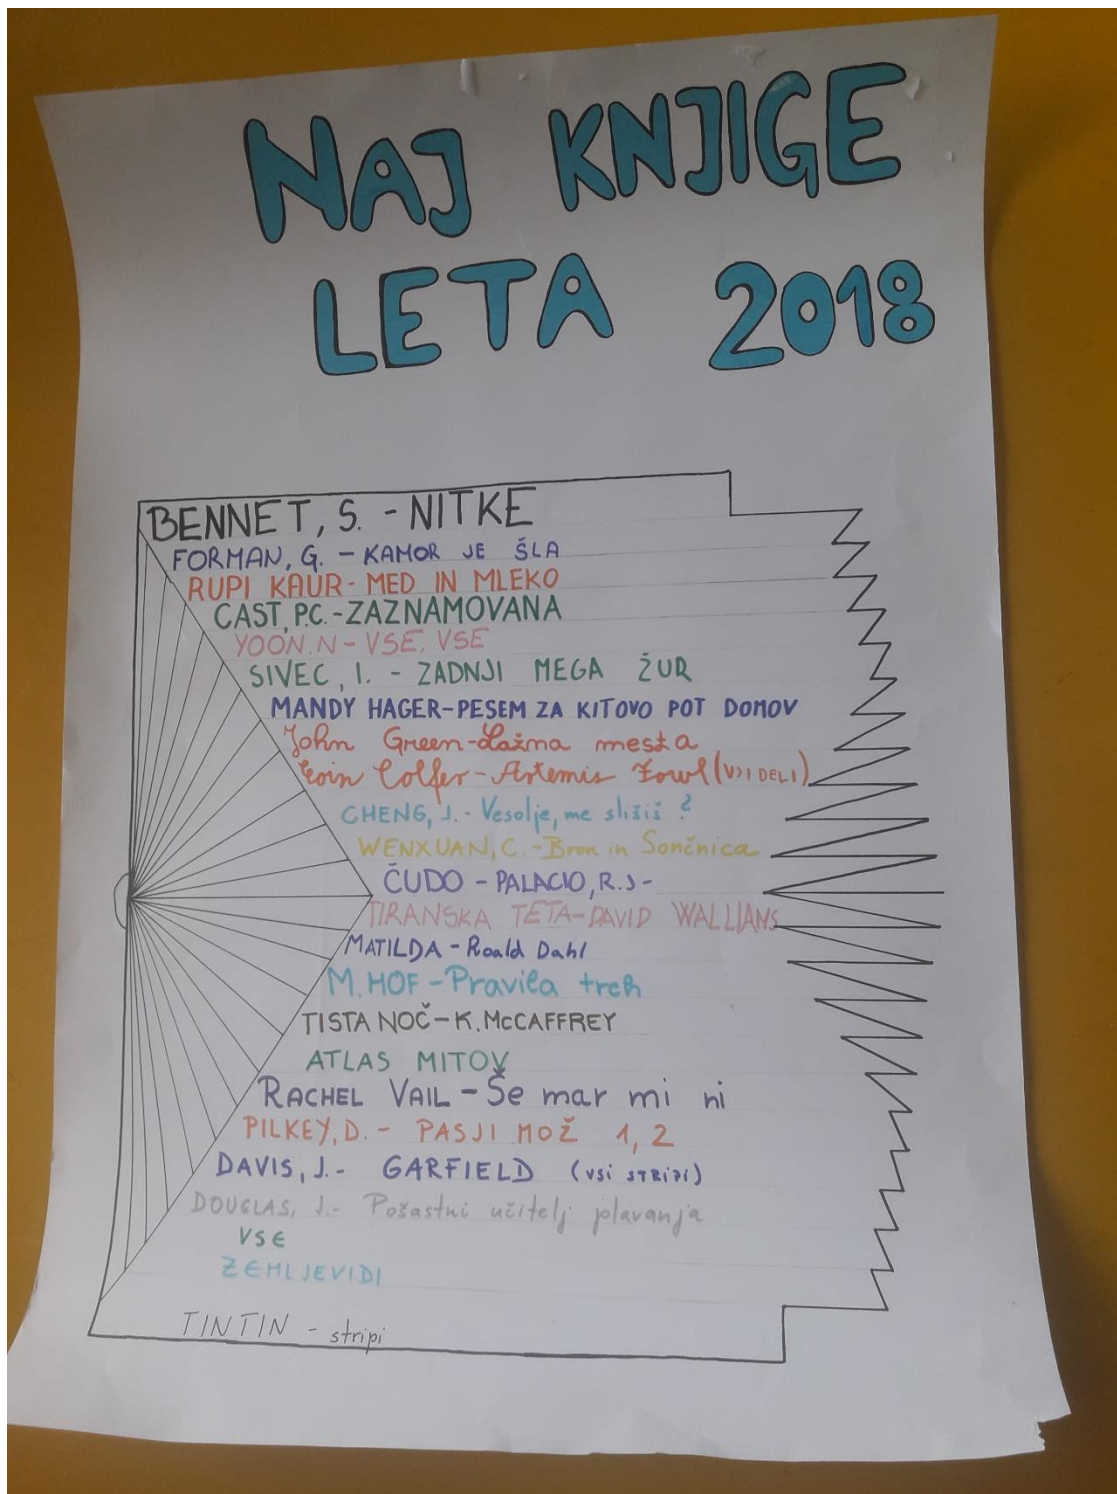 NAJ KNJIGE
LETA 2018
BENNET, S. - NITKE
FORMAN, G. - KAMOR JE ŠLA
RUPI KAUR - MED IN MLEKO
CAST, P.C. - ZAZNAMOVANA
YOON. N - VSE, VSE
SIVEC, I. - ZADNJI MEGA ŽUR
MANDY HAGER - PESEM ZA KITOVO POT DOMOV
John Green - Lažma mesta
Eoin Colfer - Artemis Fowl (VSI DELI)
CHENG, J. - Vesolje, me slišiš?
WENXUAN, C. - Bron in Sončnica
ČUDO - PALACIO, R.J -
TIRANSKA TETA - DAVID WALLIANS
MATILDA - Roald Dahl
M. HOF - Pravila treh
TISTA NOČ - K. McCAFFREY
ATLAS MITOV
RACHEL VAIL - Še mar mi ni
PILKEY, D. - PASJI MOŽ 1, 2
DAVIS, J. - GARFIELD (VSI STRIPI)
DOUGLAS, J. - Pošastni učitelj plavanja
VSE
ZEMLJEVIDI
TINTIN - stripi